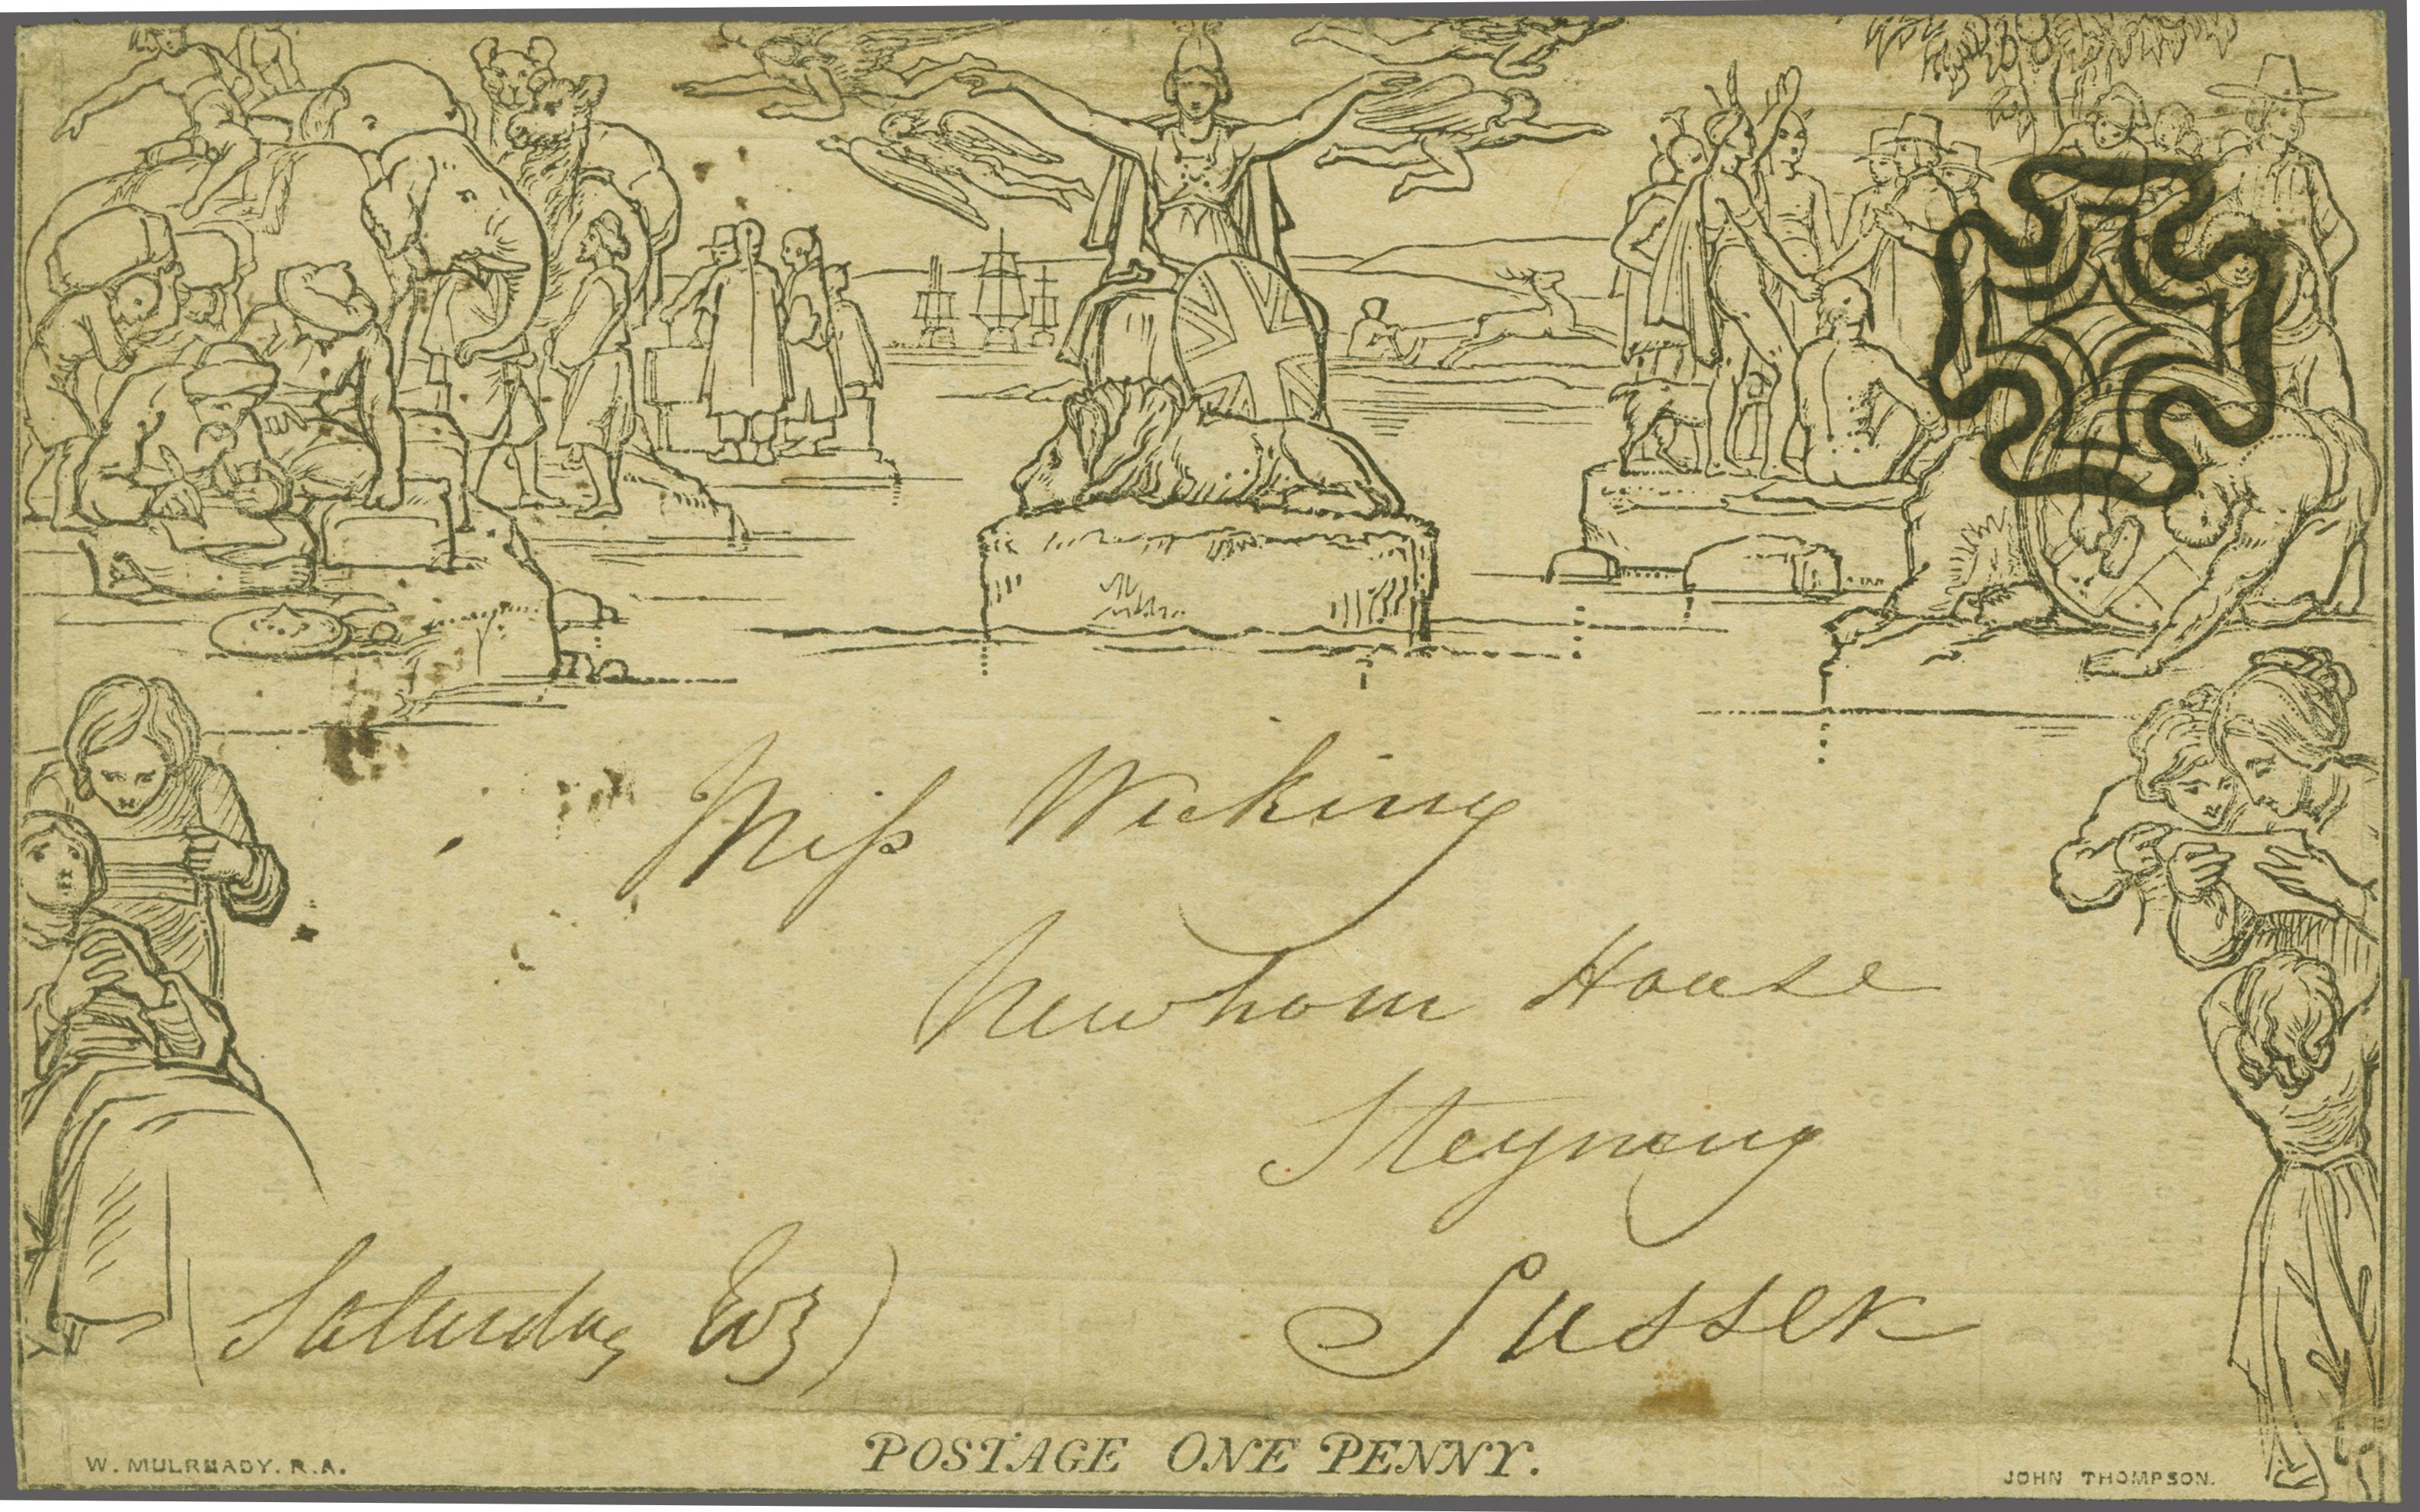 Miss Wicking
Newham House
Steyning
Sussex
(Saturday Evg)
POSTAGE ONE PENNY.
W. MULREADY. R.A.
JOHN THOMPSON.